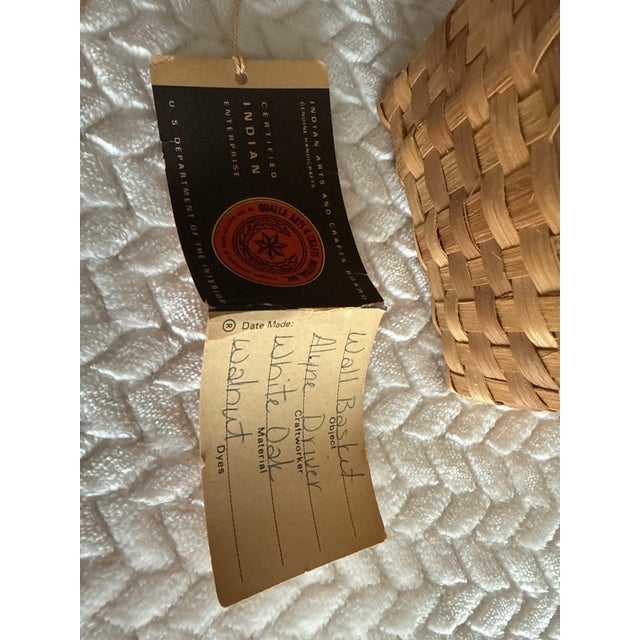 INDIAN ARTS AND CRAFTS BOARD
GENUINE HANDICRAFTS
CERTIFIED
INDIAN
ENTERPRISE
U. S. DEPARTMENT OF THE INTERIOR
QUALLA ARTS & CRAFTS MUTUAL, INC.
Wall Basket
Object
Alyne Driver
Craftworker
White Oak
Material
Walnut
Dyes
® Date Made: